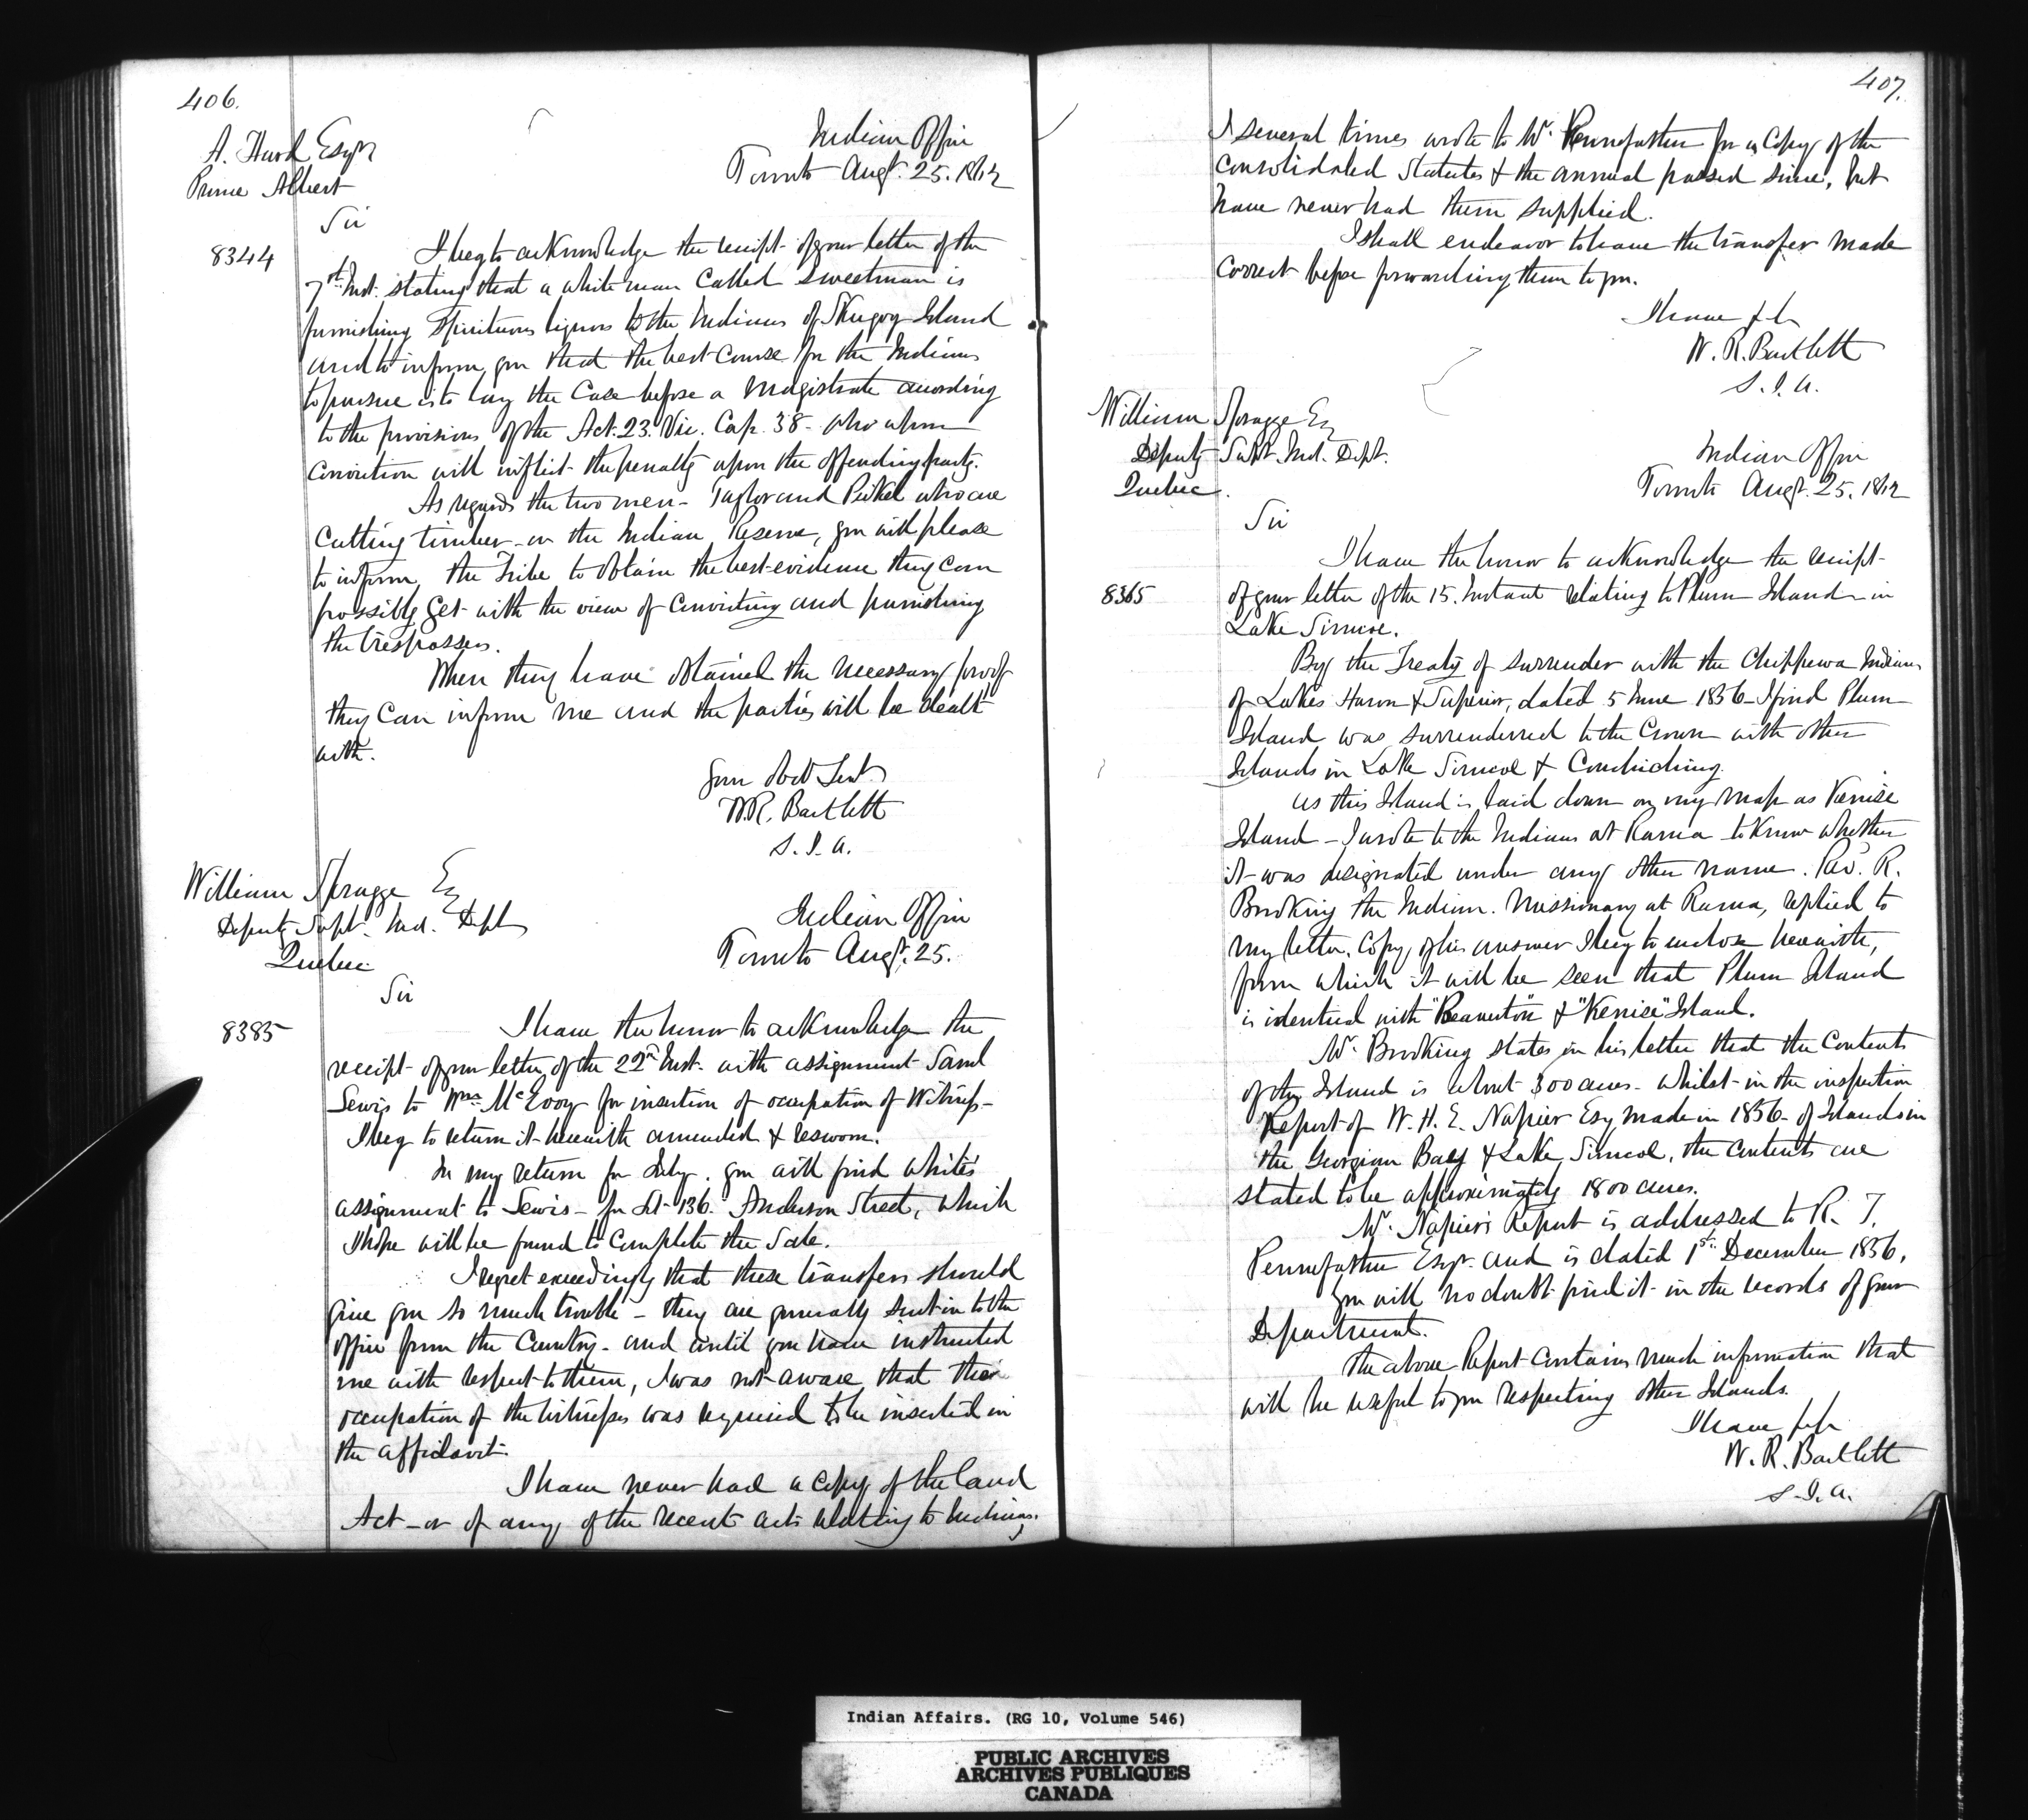 406.
A. Hurd Esqr
Prince Albert
Indian Office
Toronto Augt. 25. 1862
Sir
8344
I beg to acknowledge the receipt of your letter of the
7th Inst. stating that a white man called Sweetman is
furnishing Spirituous liquors to the Indians of Skugog Island
and to inform you that the best course for the Indians
to pursue is to lay the Case before a Magistrate according
to the provisions of the Act. 23. Vic. Cap. 38 - who upon
conviction will inflict the penalty upon the offending party.
As regards the two men - Taylor and Pickel who are
Cutting timber on the Indian Reserve, you will please
to inform the Tribe to obtain the best evidence they can
possibly get with the view of Convicting and punishing
the trespassers.
When they have obtained the necessary proof
they can inform me and the parties will be dealt
with.
Your Obdt Servt
W.R. Bartlett
S. I. A.
William Spragge Esq
Deputy Supt. Ind. Dept
Quebec
Indian Office
Toronto Augt. 25.
Sir
8385
I have the honor to acknowledge the
receipt of your letter of the 22nd Inst. with assignment Saml
Lewis to McEvoy for insertion of occupation of Witness -
I beg to return it herewith amended & resworn.
In my return for July. you will find White's
assignment to Lewis - for Lot 136. Anderson Street, which
I hope will be found to Complete the Sale.
I regret exceedingly that these transfers should
give you so much trouble - they are generally sent in to the
office from the Country - and until you have instructed
me with respect to them, I was not aware that the
occupation of the Witnesses was required to be inserted in
the affidavit.
I have never had a Copy of the Land
Act - or of any of the recent acts relating to Indians.
407.
I several times wrote to Mr. Pennefather for a Copy of the
Consolidated Statutes & the annual passed since, but
have never had them supplied.
I shall endeavor to have the transfer made
Correct before forwarding them to you.
I have &c
W. R. Bartlett
S. I. A.
William Spragge Esq
Deputy Supt. Ind. Dept.
Quebec.
Indian Office
Toronto Augt. 25. 1862
Sir
8365
I have the honor to acknowledge the receipt
of your letter of the 15. Instant relating to Plum Island - in
Lake Simcoe.
By the Treaty of surrender with the Chippewa Indians
of Lakes Huron & Superior, dated 5 June 1856 - I find Plum
Island was surrendered to the Crown with other
Islands in Lake Simcoe & Couchiching.
As this Island is laid down on my Map as Kenise
Island - I wrote to the Indians at Rama to Know whether
it was designated under any other name. Revd. R.
Brooking the Indian Missionary at Rama, replied to
my letter. Copy of his answer I beg to enclose herewith,
from which it will be seen that Plum Island
is identical with "Beaverton" & "Kenise" Island.
Mr. Brooking states in his letter that the Contents
of the Island is about 300 acres - whilst in the inspection
Report of W. H. E. Napier Esq made in 1856 - of Islands in
the Georgian Bay & Lake Simcoe, the Contents are
stated to be approximately 1800 acres.
Mr. Napier's Report is addressed to R. T.
Pennefather Esqr. and is dated 1st December 1856,
you will no doubt find it in the records of your
Department.
The above Report Contains much information that
will be useful to you respecting other Islands.
I have &c
W. R. Bartlett
S. I. A.
Indian Affairs. (RG 10, Volume 546)
PUBLIC ARCHIVES
ARCHIVES PUBLIQUES
CANADA